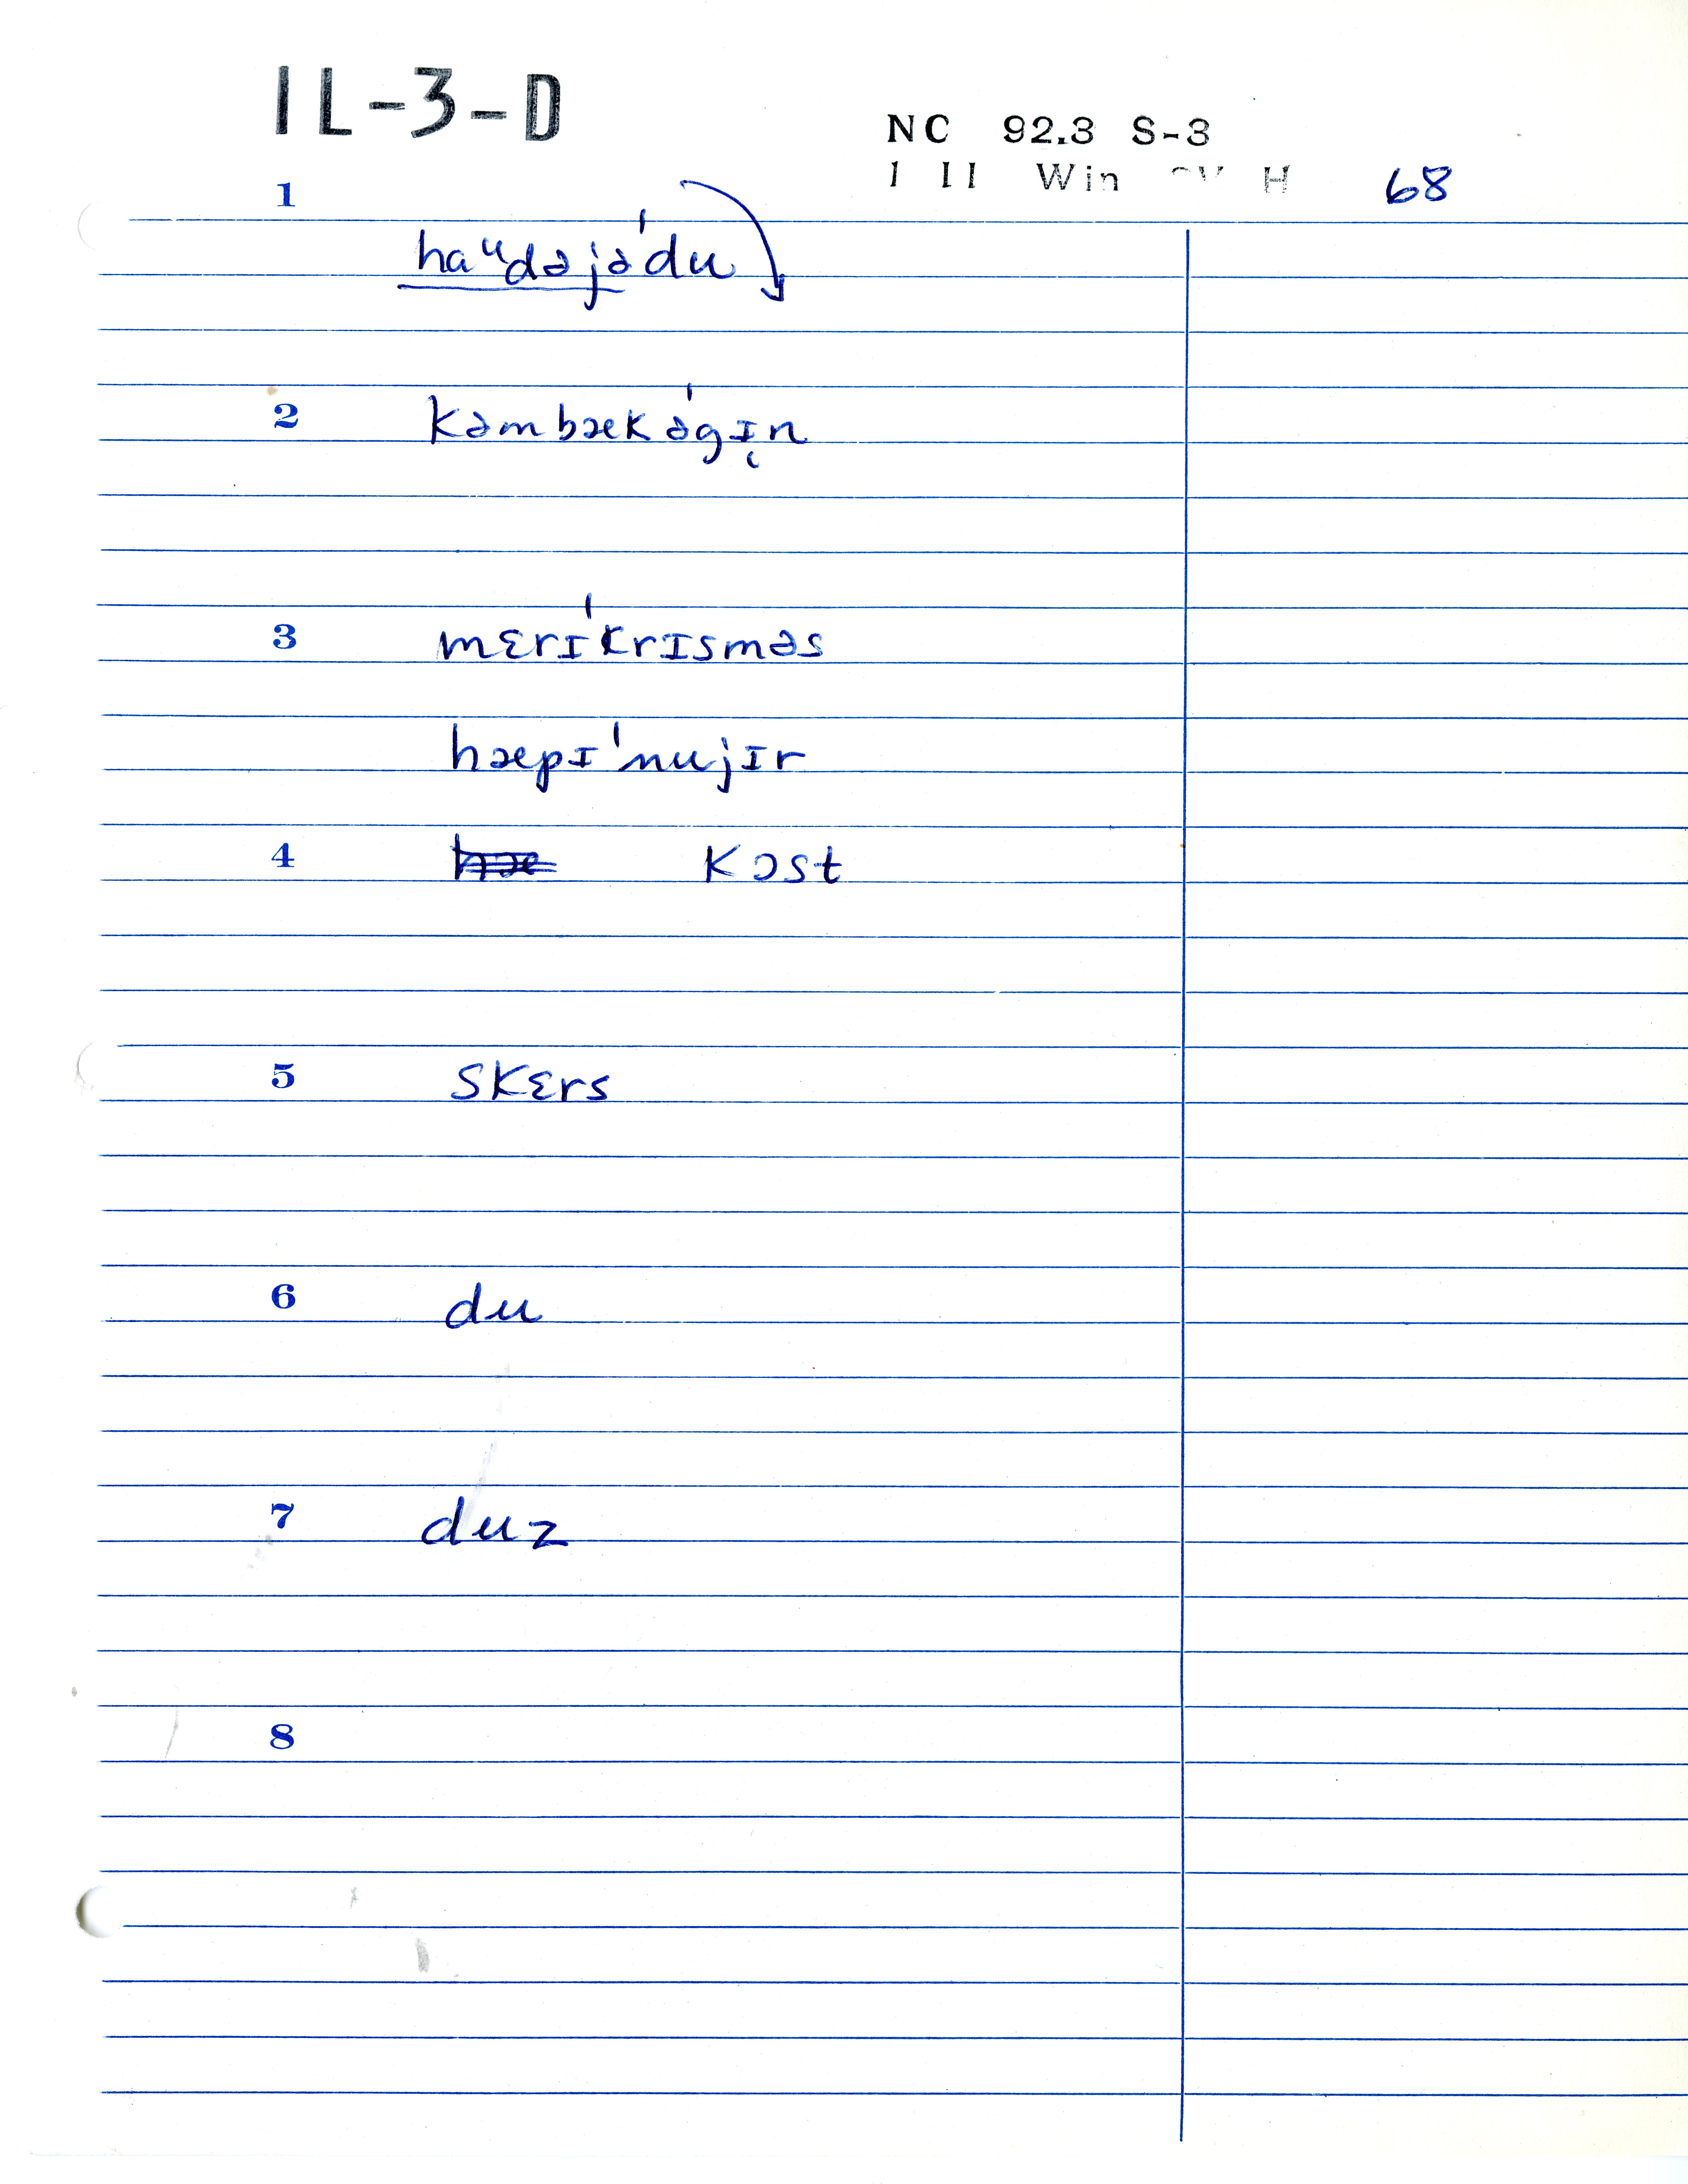 IL-3-D
NC 92.3 S-3
1 II Win H 68
1
haᵘdəjə'du
2 kəmbækə'gɪ̨n
3 mɛrɪ'krɪsməs
hæpɪ'nujɪr
4 kɔst
5 skɛrs
6 du
7 duz
8